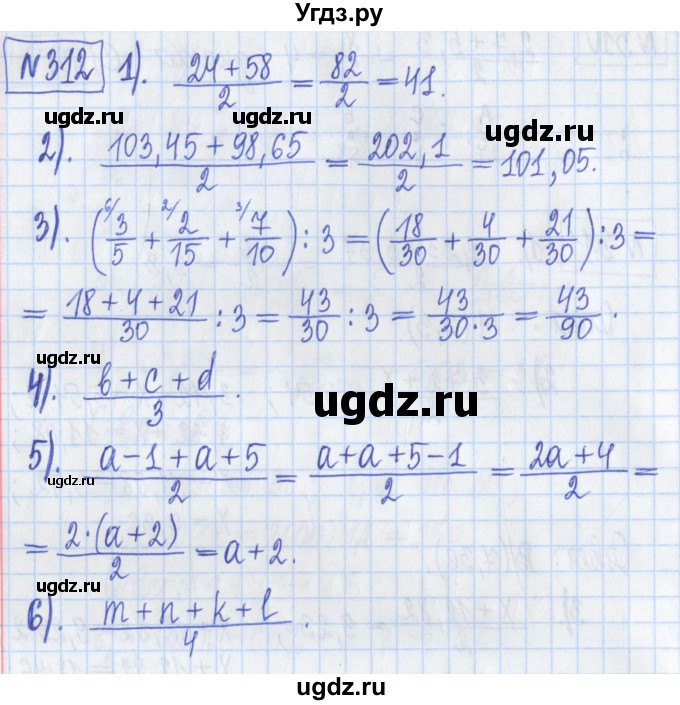 Угдз.ру
№312 1). (24+58)/2 = 82/2 = 41.
ugdz.ru ugdz.ru
ugdz.ru
2). (103,45+98,65)/2 = 202,1/2 = 101,05.
3). (⁶⁾3/5 + ²⁾2/15 + ³⁾7/10) : 3 = (18/30 + 4/30 + 21/30) : 3 =
= (18+4+21)/30 : 3 = 43/30 : 3 = 43/(30·3) = 43/90.
ugdz.ru
4). (b+c+d)/3.
ugdz.ru
5). (a-1+a+5)/2 = (a+a+5-1)/2 = (2a+4)/2 =
ugdz.ru ugdz.ru
= 2·(a+2)/2 = a+2.
ugdz.ru
6). (m+n+k+l)/4.
ugdz.ru
ugdz.ru